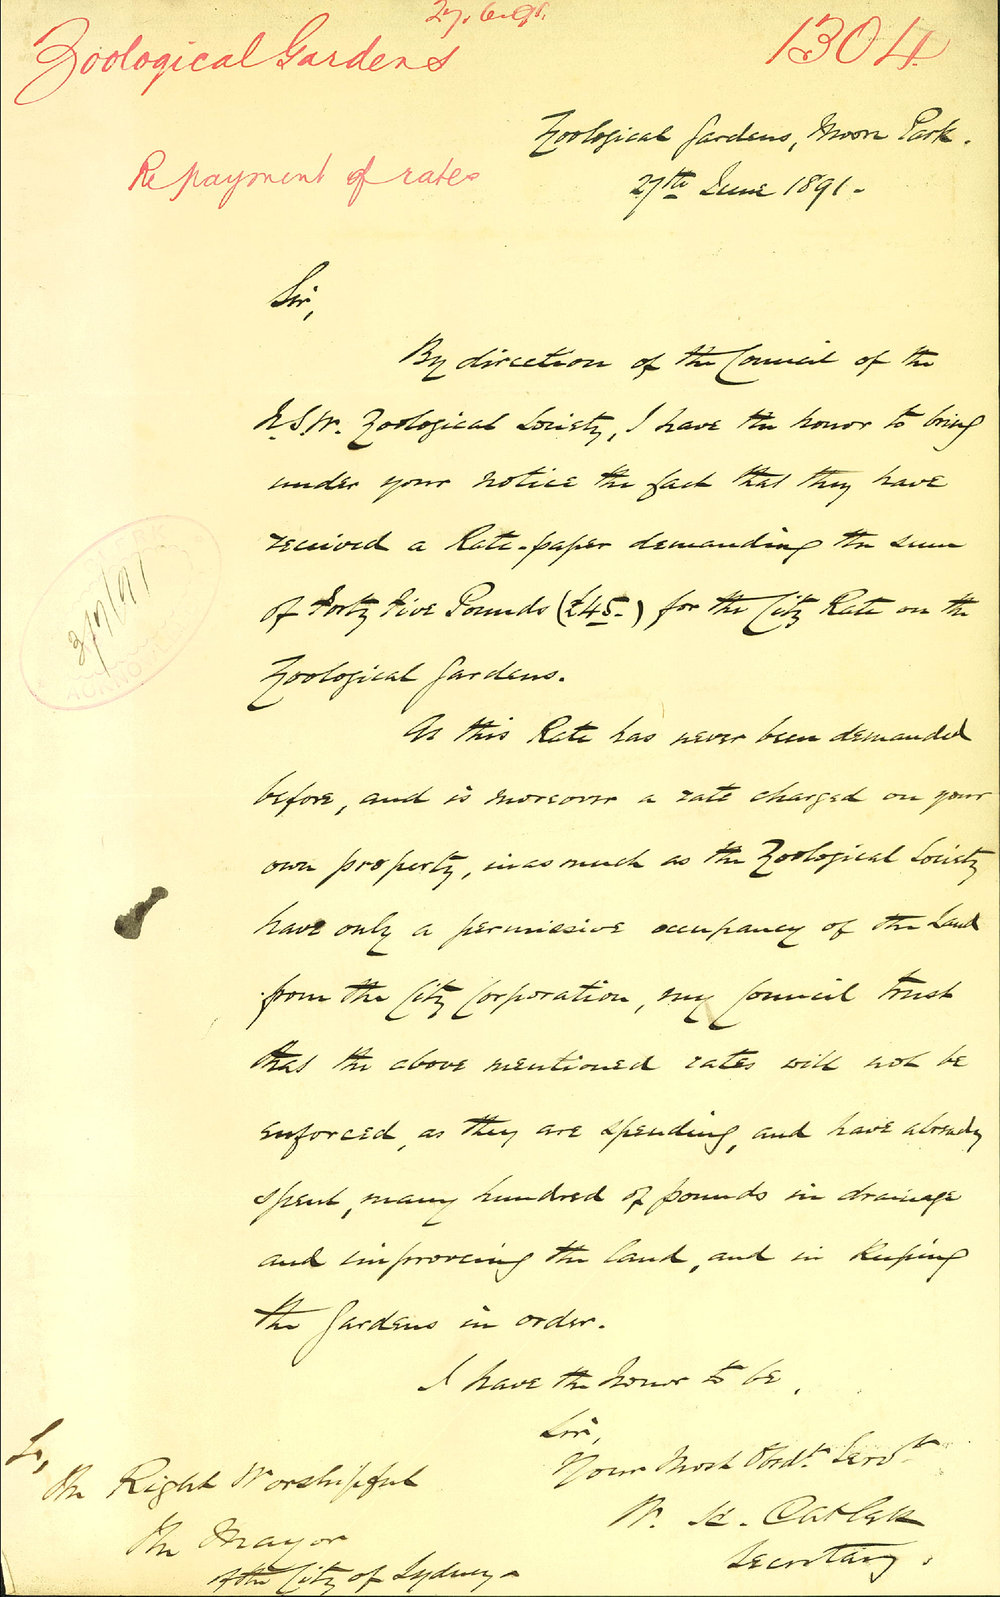 27.6.91.
Zoological Gardens
1304
Re payment of rates
Zoological Gardens, Moore Park.
27th June 1891.
Sir,
By direction of the Council of the
N.S.W. Zoological Society, I have the honor to bring
under your notice the fact that they have
received a Rate-paper demanding the sum
of Forty Five Pounds (£45.) for the City Rate on the
Zoological Gardens.
As this Rate has never been demanded
before, and is moreover a rate charged on your
own property, inasmuch as the Zoological Society
have only a permissive occupancy of the Land
from the City Corporation, my Council trust
that the above mentioned rates will not be
enforced, as they are spending, and have already
spent, many hundred of pounds in drainage
and improving the land, and in keeping
the Gardens in order.
I have the honor to be,
Sir,
Your Most Obdt. Servt
W. H. Catlett
Secretary.
To,
The Right Worshipful
The Mayor
of the City of Sydney
3/7/91